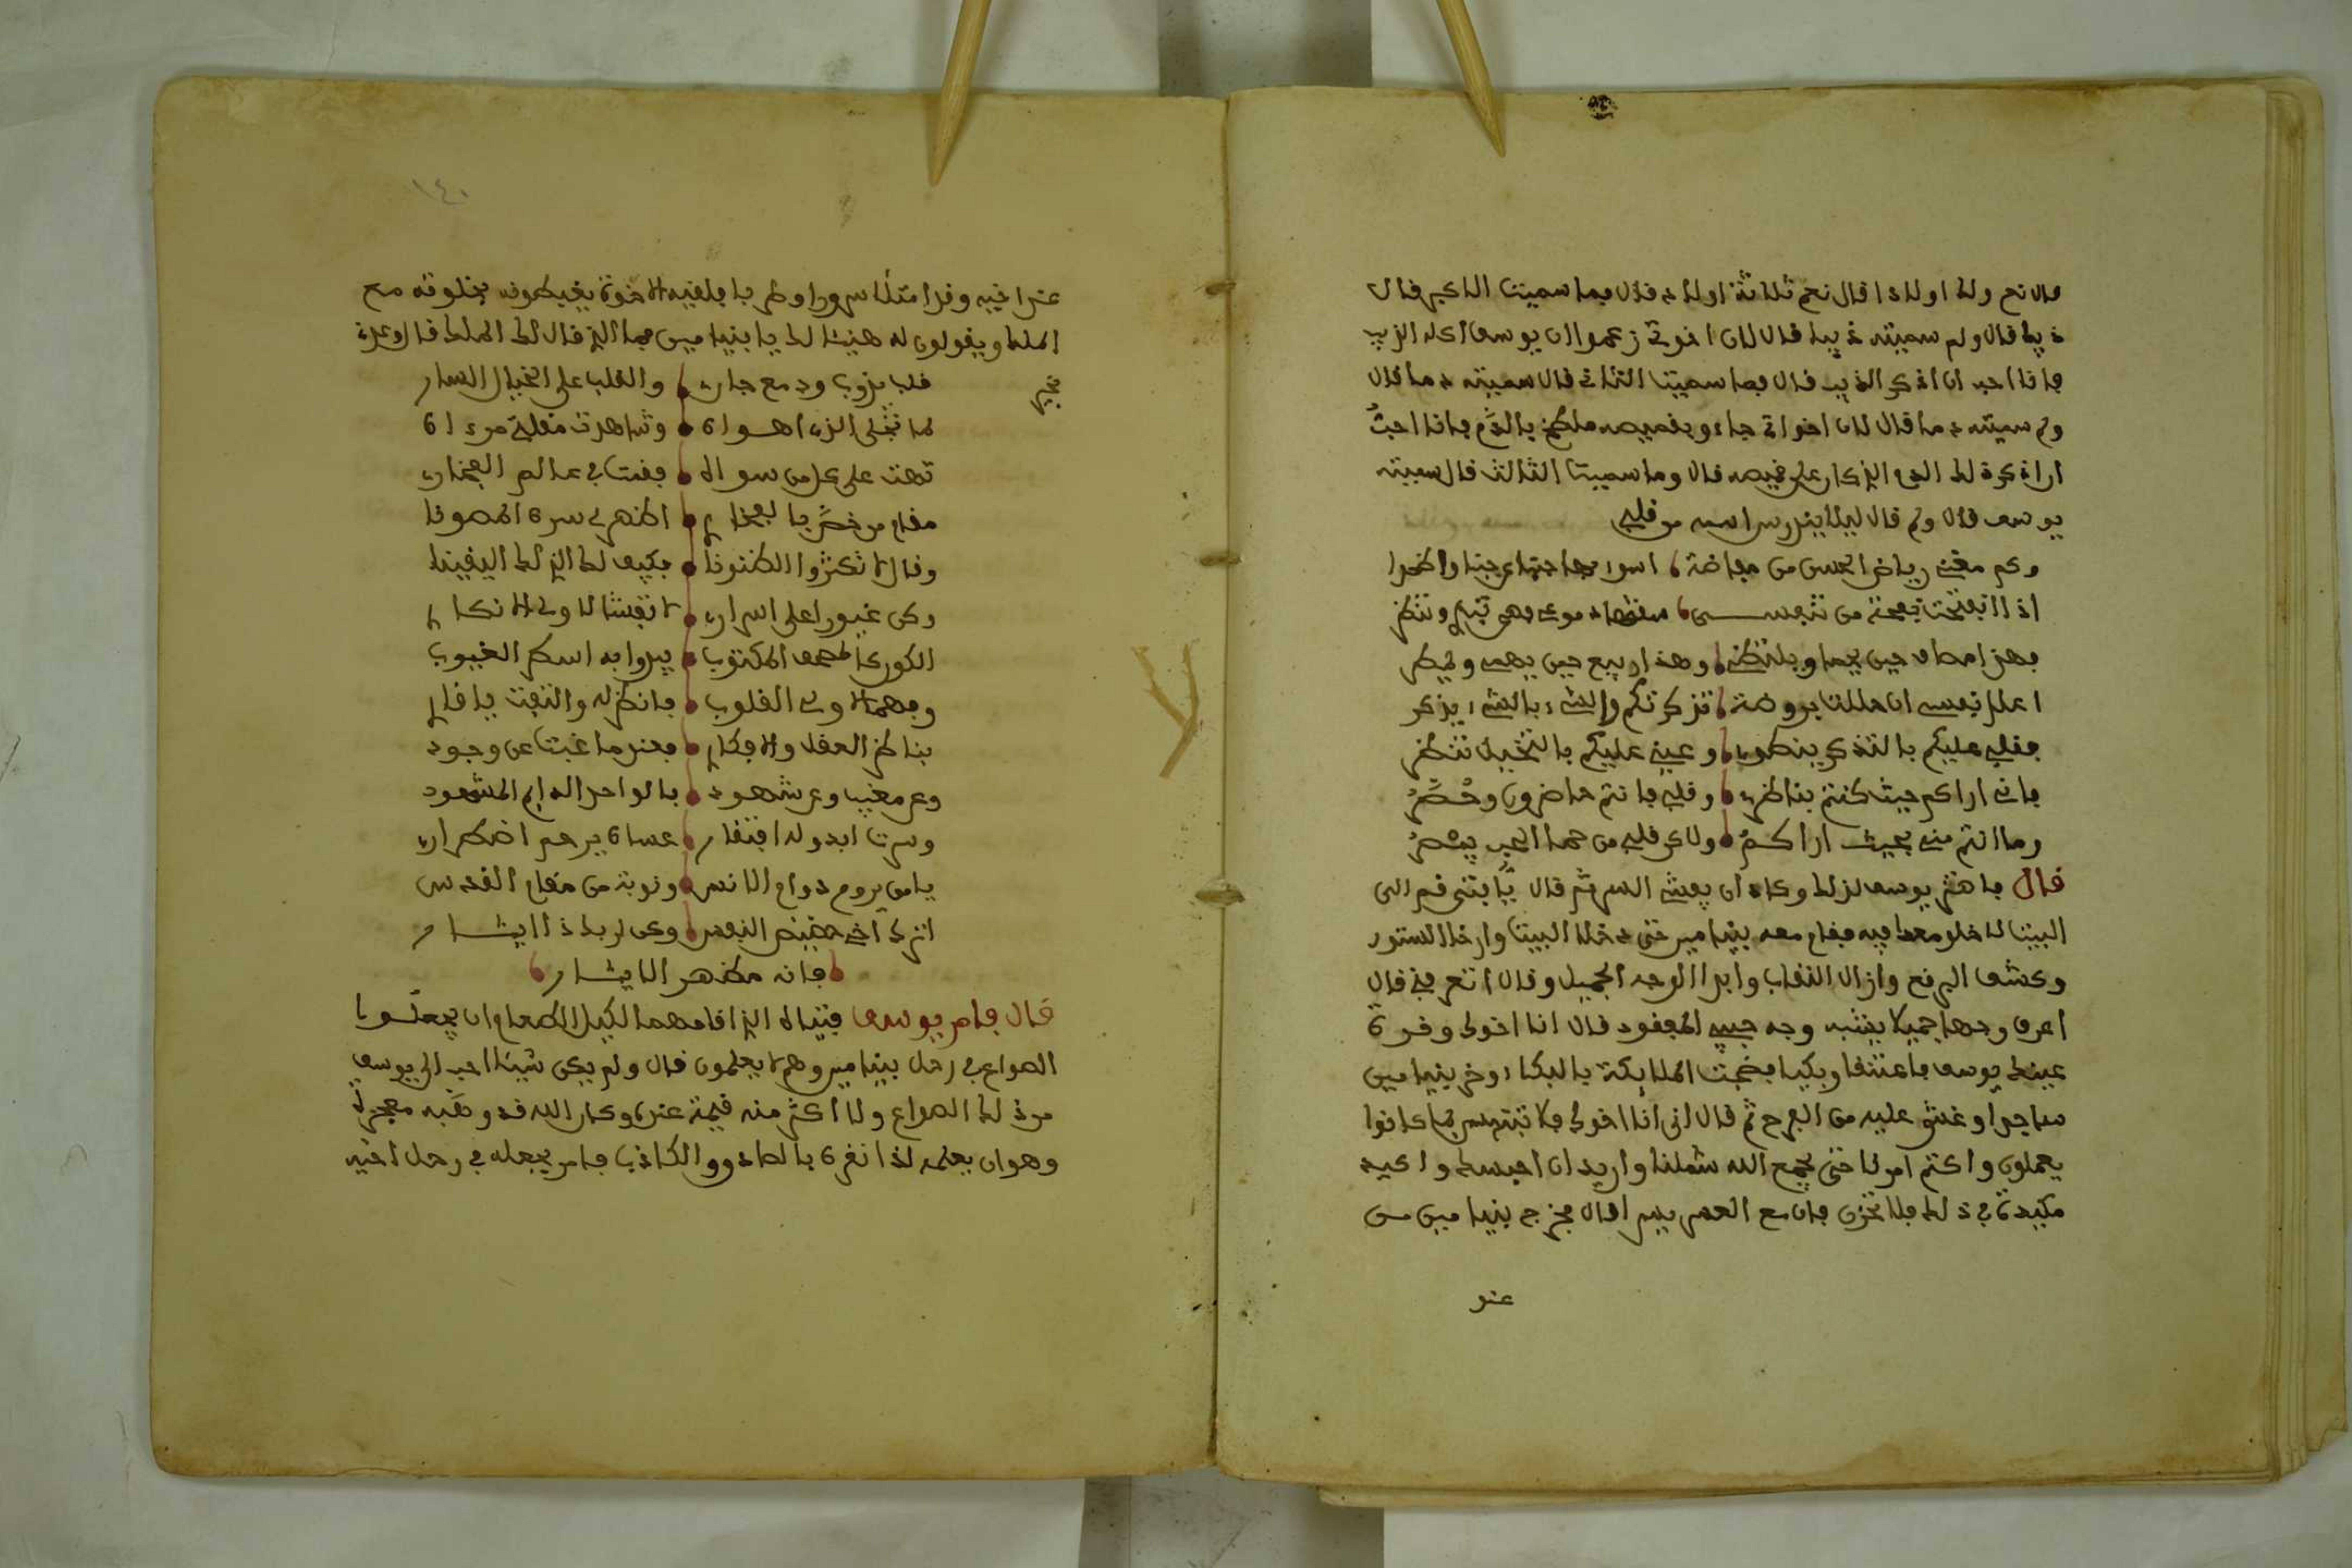 قال نعم ولد اولادا قال نعم ثلاثة اولاد قال فما سميت الاكبر قال
ذيبا قال ولم سميته ذيبا قال لان اخوتي زعموا ان يوسف اكله الذيب
فانا احب ان اذكر الذيب قال فما سميت الثاني قال سميته دما قال
ولم سميته دما قال لان اخواتي جاءو بقميصه ملطخ بالدم فانا احبُ
ان اذكر ذلك الدم الذي كان على قميصه قال وما سميت الثالث قال سميته
يوسف قال ولم قال ليلا يندرس اسمه من قلبي
وكم مغنى رياض الحسن من
اذا تفتحت نفحة من نفسي
فهذا مصاف حين
اعلل نفسي ان مللت بروضة تذكرتكم والشيء بالشيء يذكر
فقلبي عليكم بالتذكر ينطوي وعيني عليكم بالتخيل تنظر
فاني اراكم حيث كنتم بناظري وقلبي فانتم حاضرون وحُضَّرُ
وما انتم مني بحيث اراكمُ ولا عن قلبي من حما الحب
قال فاهتز يوسف لذلك وكاد ان يفشي السر ثم قال يا فتى قم الى
البيت لاخلو معك فيه فقام معه بنيامين حتى دخلا البيت وارخا الستور
وكشف البرقع وازال النقاب وابدا الوجه الجميل وقال اتعرفني قال
اعرف وجها جميلا يشبه وجه حبيبي المفقود قال انا اخوك وقرة
عينك يوسف فاعتنقا وبكيا فضجت الملايكة بالبكاء وخر بنيامين
ساجدا وغشي عليه من الفرح ثم قال اني انا اخوك فلا تبتئس بما كانوا
يعملون واكتم امرنا حتى يجمع الله شملنا واريد ان احبسك واكيد
مكيدة في ذلك فلا تحزن فان مع العسر يسرا قال فخرج بنيامين من
عند
١٤٠
عند اخيه وقد امتلا سرورا وظربا فلقيه الاخوة يغبطونه بخلوته مع
الملك ويقولون له هنيئا لك يا بنيامين فما الذي قال لك الملك قال وعدني
بخير
قلب يذوب ودمع جاري والقلب على الخيال الساري
لما تجلى الذي اهواه وشاهدت مقلتي مرءاه
تهت على كل من سواه فغبت في عالم الفخاري
مقام من خُصَّ بالفخار اظهر لي سره المصونا
وقال لا تكثروا الظنونا فكيف لك الذي لك اليقينا
وكن غيورا على اسراري لا تفشها لاولي الانكار
الكون كالمصحف المكتوب يبدوا به اسطر الغيوب
وفهمها لاولي القلوب فانظر له والتفت يا قاري
بناظر العقل والافكار فعندما غبت عن وجود
وعن مغيب وعن شهود بالواحد الدايم المشهود
وسرت ابدو له افتقار عساه يرحم اضطراري
يا من يروم دوام الانس ونوبة من مقام القدس
اترك اخي حضيض النفس وكن لربك ذا ايثار
فانه مظهر الايثار
قال فامر يوسف فتيانه الذي اقامهما لكيل الطعام ان يجعلوا
الصواع في رحل بنيامين وهم لا يعلمون قال ولم يكن شيئا احب الى يوسف
من ذلك الصواع ولا اكثر منه قيمة عنده وكان الله قد وهبه معجزة
وهو ان يعلمه اذا نقره بالصادق والكاذب فامر بجعله في رحل اخيه